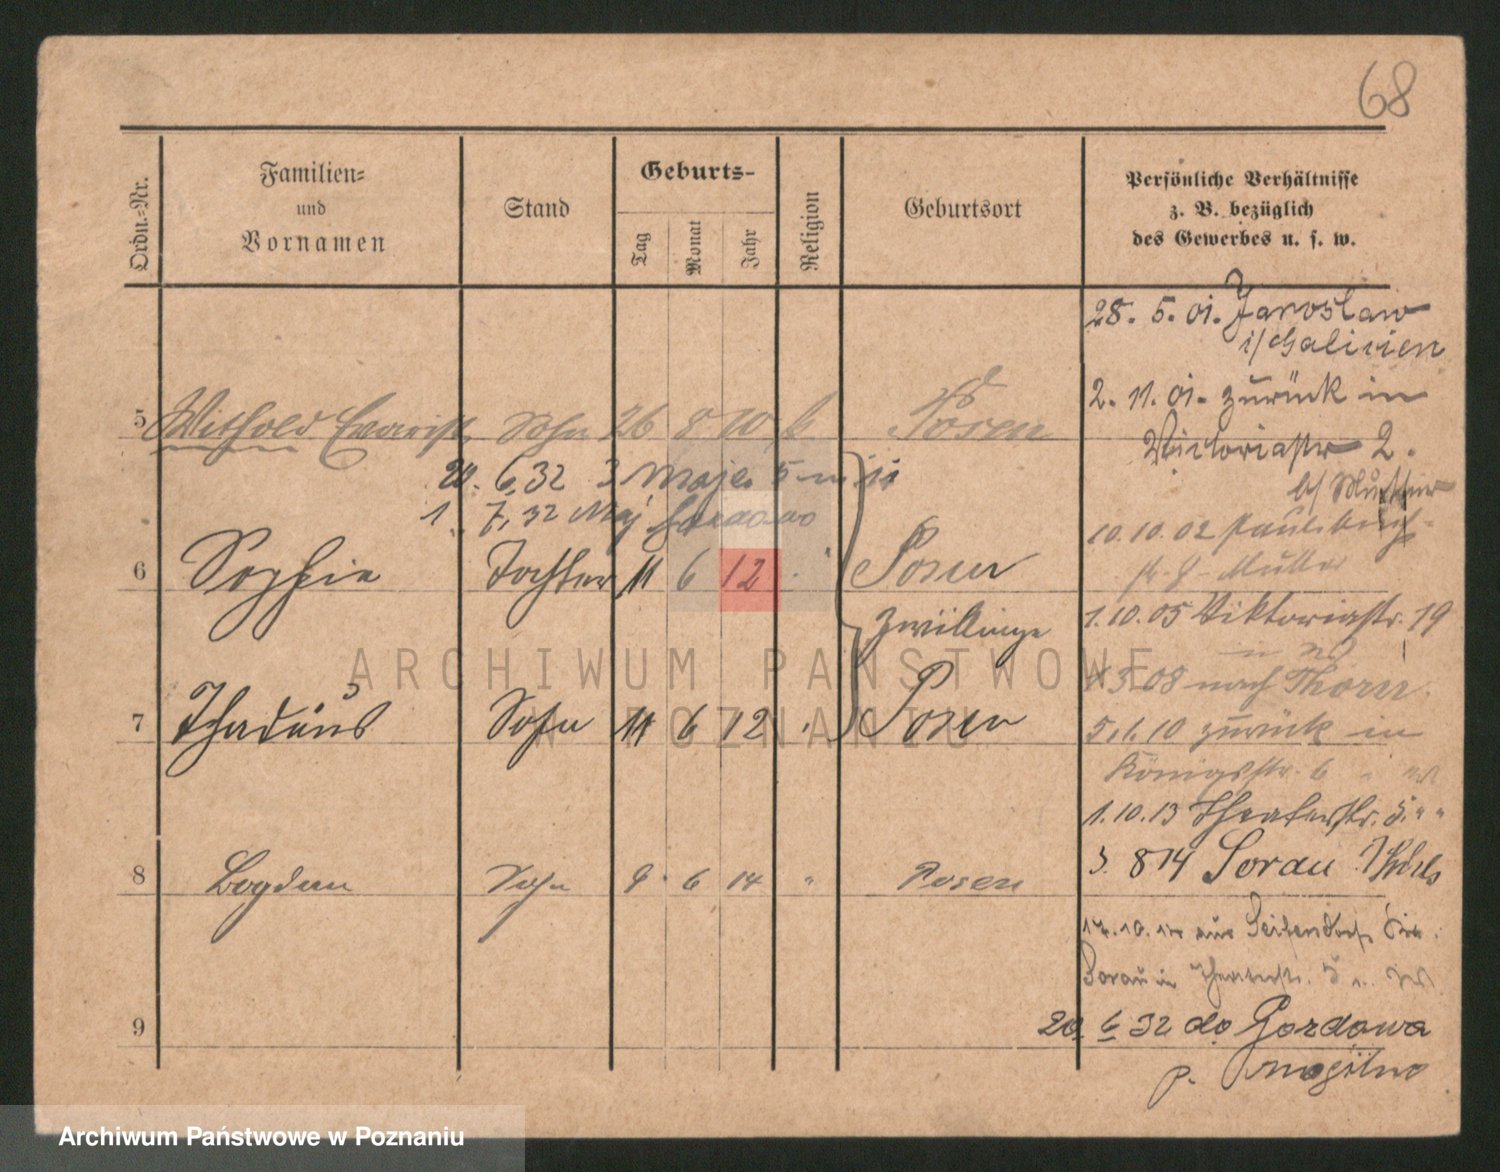 68
Ordn.-Nr.
Familien-
und
Vornamen
Stand
Geburts-
Tag
Monat
Jahr
Religion
Geburtsort
Persönliche Verhältnisse
z. B. bezüglich
des Gewerbes u. s. w.
28. 5. 01. Jaroslaw
i/Galizien
2. 11. 01. zurück in
Victoriastr 2.
b/ Mutter
5 Withold Evarist Sohn 26 8 10 k Posen
20. 6.32 3 Maja 5 m 11
1. 7.32 Maj
10.10.02
Mutter
6 Sophie Tochter 11 6 12 Posen
1.10.05 Viktoriastr. 19
Zwillinge
08 nach Thorn.
7 Thadäus Sohn 11 6 12 " Posen
5.1.10 zurück in
Königsstr. 6
1.10.13 Theaterstr. 5. " "
3. 8 14 Sorau
8 Bogdan Sohn 9. 6 14 " Posen
aus Seifersdorf
Sorau in Theaterstr. 5
9
20. 6 32 do Gordowa
p. Mogilno
ARCHIWUM PAŃSTWOWE
W POZNANIU
Archiwum Państwowe w Poznaniu